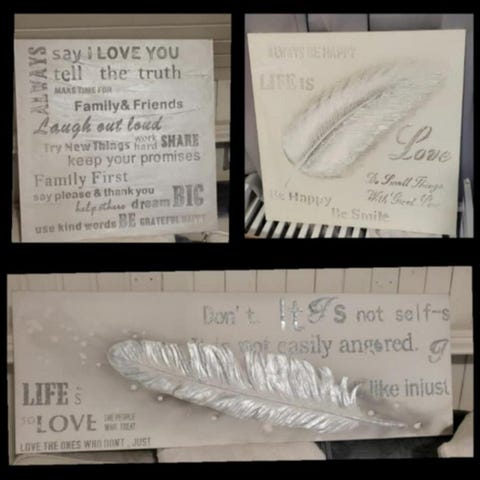 ALWAYS
say I LOVE YOU
tell the truth
MAKE TIME FOR
Family & Friends
Laugh out loud
Try New Things work hard SHARE
keep your promises
Family First
say please & thank you
help others dream BIG
use kind words BE GRATEFUL HAPPY
ALWAYS BE HAPPY
LIFE IS
Love
Do Small Things
With Great Love
Be Happy
Be Smile
Don't It is not self-s
it is not easily angered. g
like injust
LIFE is
SO LOVE THE PEOPLE WHO TREAT
LOVE THE ONES WHO DON'T , JUST